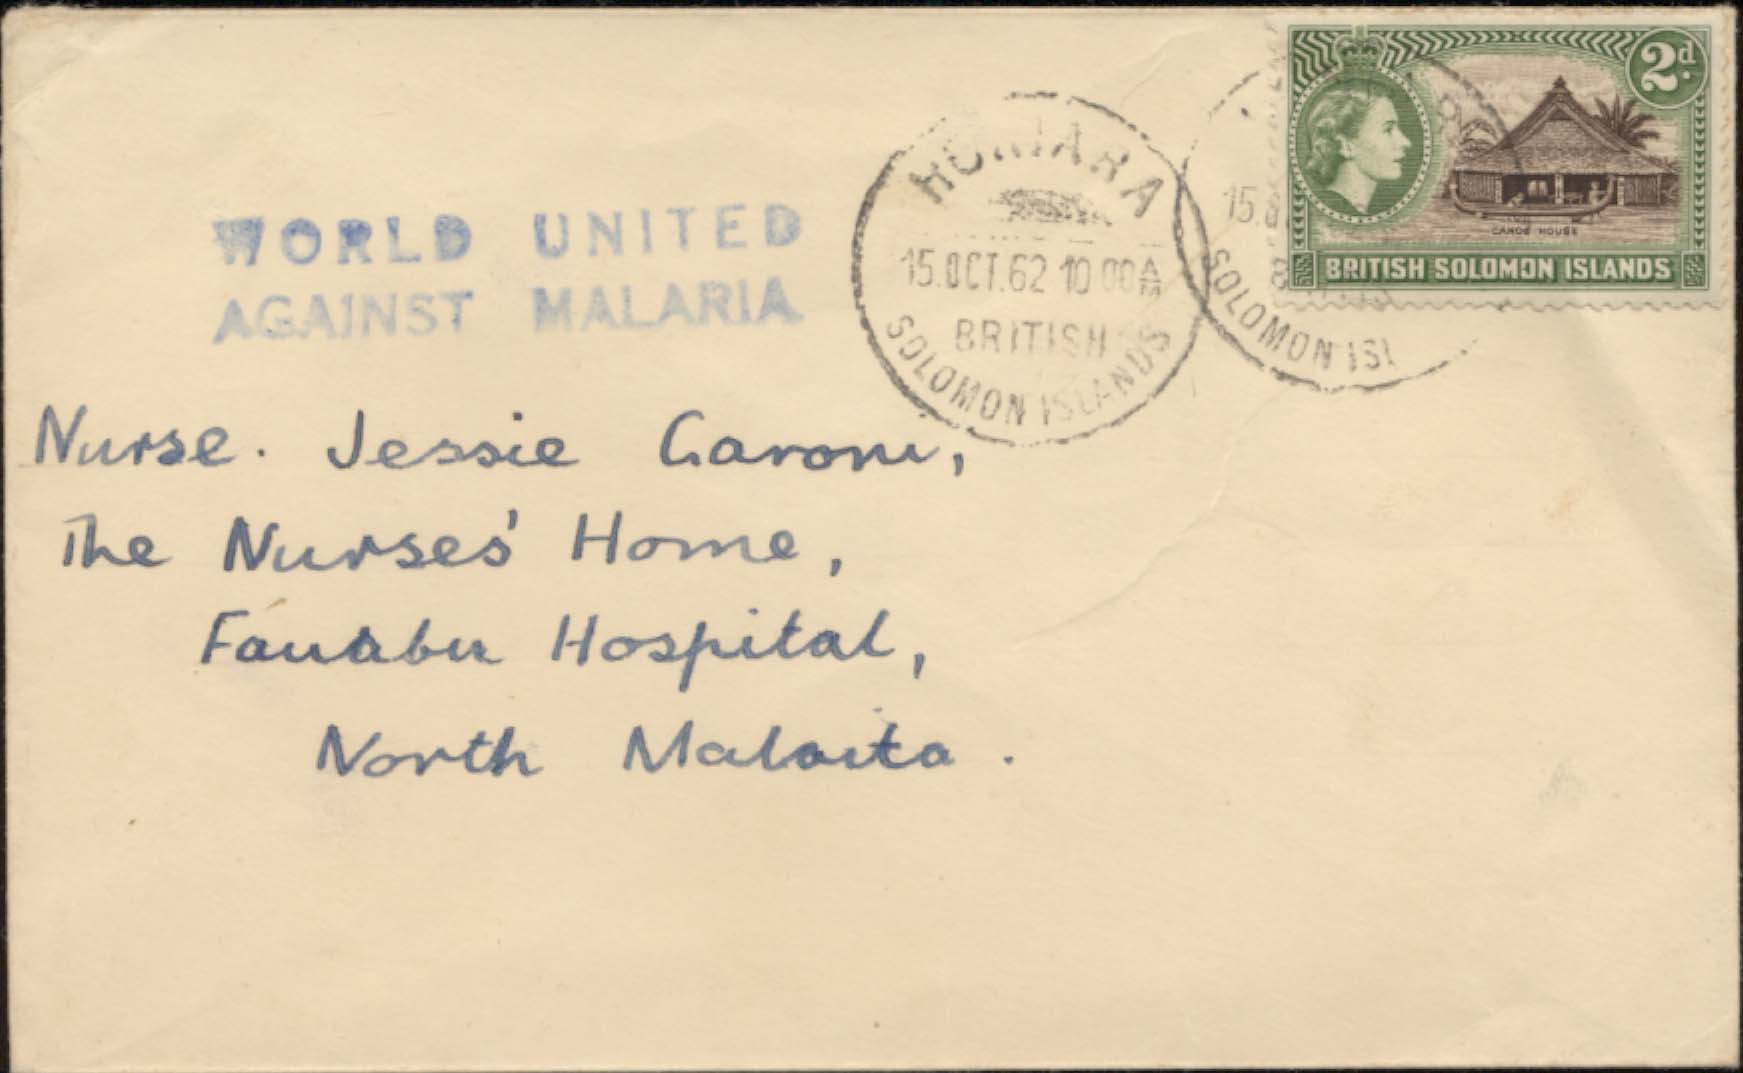 2d.
CANOE HOUSE
BRITISH SOLOMON ISLANDS
HONIARA
15.OCT.62 10 00 AM
BRITISH
SOLOMON ISLANDS
15.
SOLOMON ISL
WORLD UNITED
AGAINST MALARIA
Nurse. Jessie
The Nurses' Home,
Fauabu Hospital,
North Malaita.